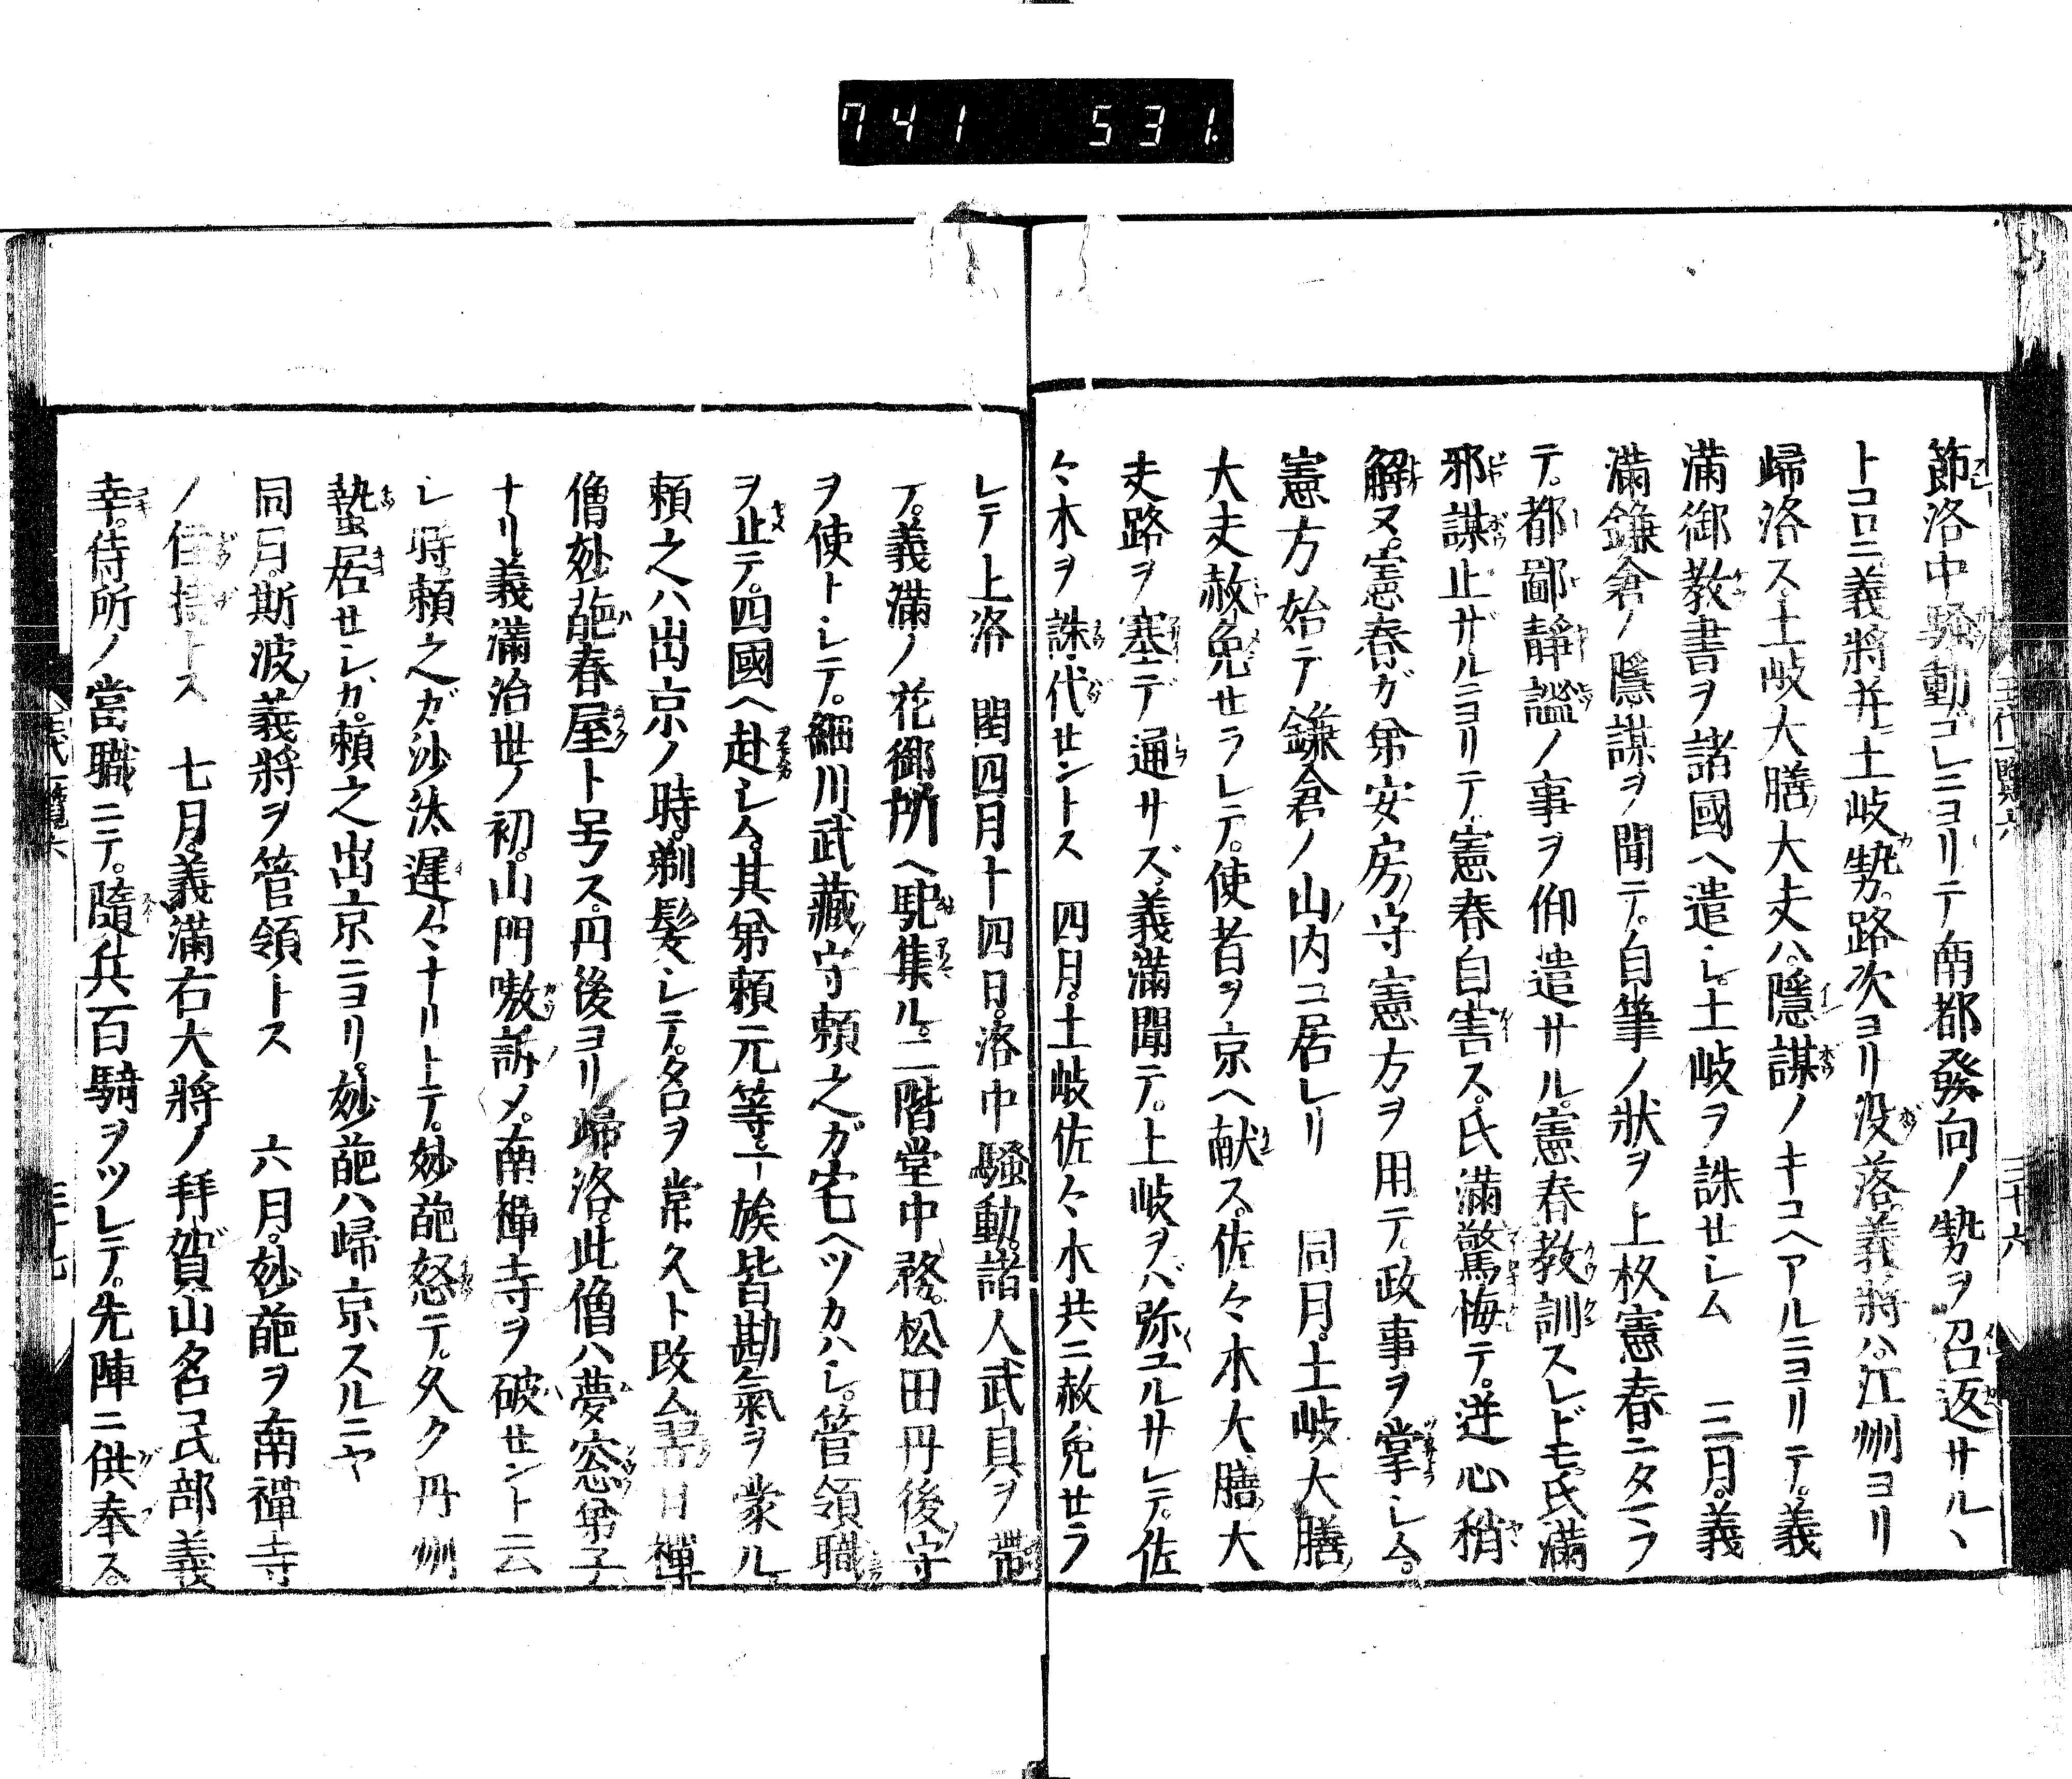 741 531
節洛中騷動コレニヨリテ南都發向ノ勢ヲ召返サルヽ
トコロニ義將并土岐勢路次ヨリ沒落義將ハ江州ヨリ
歸洛ス土岐大膳大夫ハ隱謀ノキコヘアルニヨリテ義
滿御教書ヲ諸國ヘ遣シ土岐ヲ誅セシム　三月義
滿鎌倉ノ隱謀ヲ聞テ自筆ノ狀ヲ上杦憲春ニタマフ
テ都鄙靜謐ノ事ヲ仰遣サル憲春教訓スレドモ氏滿
邪謀止ザルニヨリテ憲春自害ス氏滿驚悔テ逆心稍
解ヌ憲春ガ弟安房守憲方ヲ用テ政事ヲ掌シム
憲方始テ鎌倉ノ山内ニ居レリ　同月土岐大膳
大夫赦免セラレテ使者ヲ京ヘ献ス佐々木大膳大
夫路ヲ塞デ通サズ義滿聞テ土岐ヲバ弥ユルサレテ佐
々木ヲ誅代セントス　四月土岐佐々木共ニ赦免セラ
レテ上洛　閏四月十四日洛中騷動諸人武具ヲ帶
テ義滿ノ花御所ヘ馳集ル二階堂中務松田丹後守
ヲ使トシテ細川武藏守頼之ガ宅ヘツカハシ管領職
ヲ止テ四國ヘ赴シム其弟頼元等一族皆勘氣ヲ蒙ル
頼之ハ出京ノ時剃髮シテ名ヲ常久ト改ム翌日禪
僧妙葩春屋ト号ス丹後ヨリ歸洛此僧ハ夢窓弟子
ナリ義滿治世ノ初山門嗷訴メ南禪寺ヲ破セント云
シ時頼之ガ沙汰遲々ナリトテ妙葩怒テ久ク丹州
蟄居セシガ頼之出京ニヨリ妙葩ハ歸京スルニヤ
同月斯波義將ヲ管領トス　六月妙葩ヲ南禪寺
ノ住持トス　七月義滿右大將ノ拜賀山名民部義
幸侍所ノ當職ニテ隨兵百騎ヲツレテ先陣ニ供奉ス